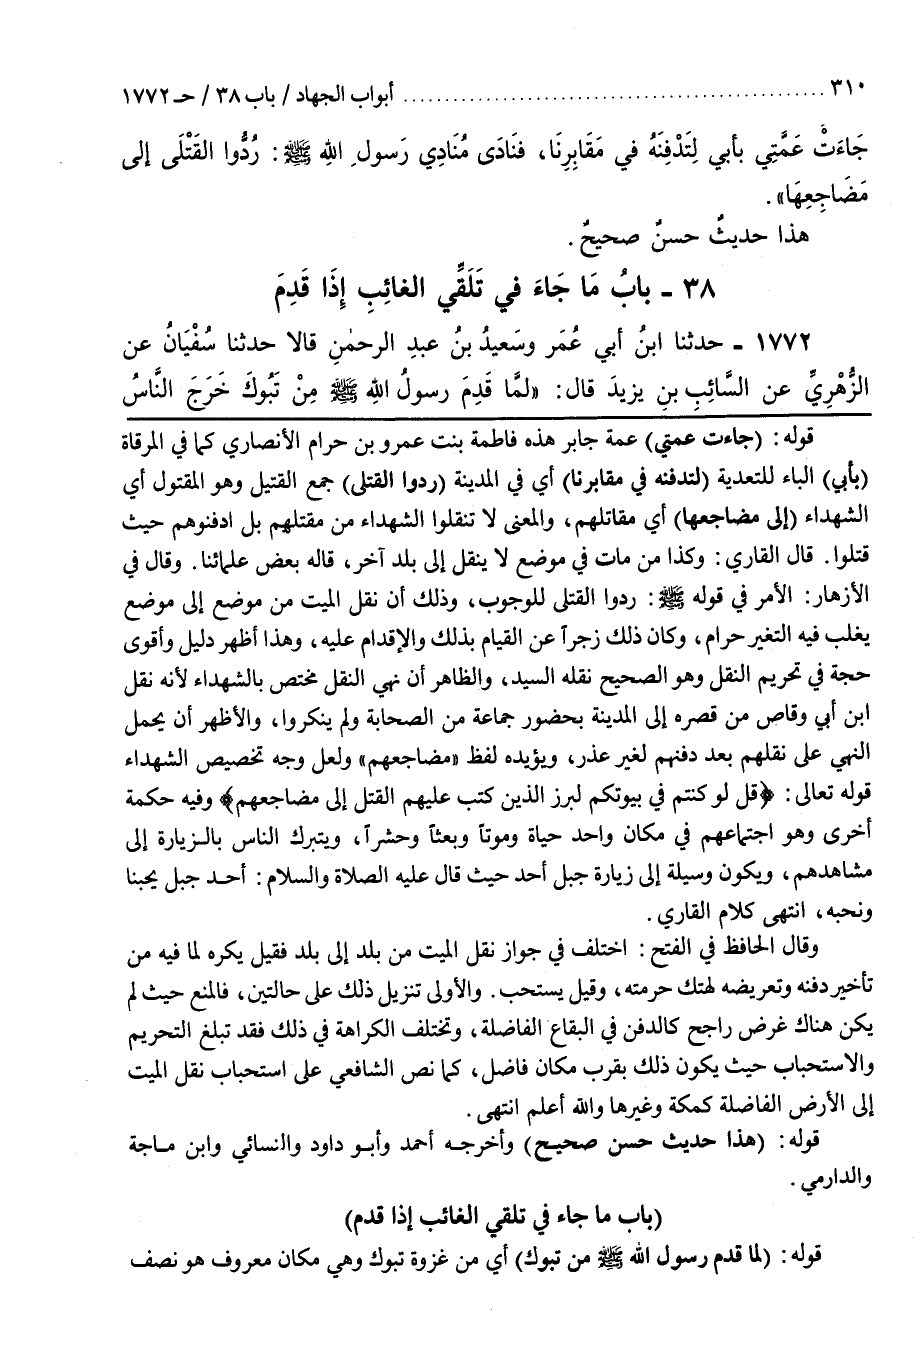 ٣١٠ ........................................................ أبواب الجهاد / باب ٣٨ / حـ ١٧٧٢
جَاءَتْ عَمَّتِي بأبي لِتَدْفِنَهُ في مَقَابِرِنَا، فنَادَى مُنَادِي رَسولِ اللهِ ﷺ: رُدُّوا القَتْلَى إلى
مَضَاجِعِهَا».
هذا حديثٌ حسنٌ صحيحٌ.
٣٨ ـ بابُ مَا جَاءَ في تَلَقِّي الغائِبِ إِذَا قَدِمَ
١٧٧٢ ـ حدثنا ابنُ أبي عُمَر وسَعيدُ بنُ عبدِ الرحمٰنِ قالا حدثنا سُفْيَانُ عن
الزُّهْرِيِّ عن السَّائِبِ بنِ يزيدَ قال: «لمَّا قَدِمَ رسولُ اللهِ ﷺ مِنْ تَبُوكَ خَرَجَ النَّاسُ
قوله: (جاءت عمتي) عمة جابر هذه فاطمة بنت عمرو بن حرام الأنصاري كما في المرقاة
(بأبي) الباء للتعدية (لتدفنه في مقابرنا) أي في المدينة (ردوا القتلى) جمع القتيل وهو المقتول أي
الشهداء (إلى مضاجعها) أي مقاتلهم، والمعنى لا تنقلوا الشهداء من مقتلهم بل ادفنوهم حيث
قتلوا. قال القاري: وكذا من مات في موضع لا ينقل إلى بلد آخر، قاله بعض علمائنا. وقال في
الأزهار: الأمر في قوله ﷺ: ردوا القتلى للوجوب، وذلك أن نقل الميت من موضع إلى موضع
يغلب فيه التغير حرام، وكان ذلك زجراً عن القيام بذلك والإقدام عليه، وهذا أظهر دليل وأقوى
حجة في تحريم النقل وهو الصحيح نقله السيد، والظاهر أن نهي النقل مختص بالشهداء لأنه نقل
ابن أبي وقاص من قصره إلى المدينة بحضور جماعة من الصحابة ولم ينكروا، والأظهر أن يحمل
النهي على نقلهم بعد دفنهم لغير عذر، ويؤيده لفظ «مضاجعهم» ولعل وجه تخصيص الشهداء
قوله تعالى: ﴿قل لو كنتم في بيوتكم لبرز الذين كتب عليهم القتل إلى مضاجعهم﴾ وفيه حكمة
أخرى وهو اجتماعهم في مكان واحد حياة وموتاً وبعثاً وحشراً، ويتبرك الناس بالـزيارة إلى
مشاهدهم، ويكون وسيلة إلى زيارة جبل أحد حيث قال عليه الصلاة والسلام: أحـد جبل يحبنا
ونحبه، انتهى كلام القاري.
وقال الحافظ في الفتح: اختلف في جواز نقل الميت من بلد إلى بلد فقيل يكره لما فيه من
تأخير دفنه وتعريضه لهتك حرمته، وقيل يستحب. والأولى تنزيل ذلك على حالتين، فالمنع حيث لم
يكن هناك غرض راجح كالدفن في البقاع الفاضلة، وتختلف الكراهة في ذلك فقد تبلغ التحريم
والاستحباب حيث يكون ذلك بقرب مكان فاضل، كما نص الشافعي على استحباب نقل الميت
إلى الأرض الفاضلة كمكة وغيرها والله أعلم انتهى.
قوله: (هذا حديث حسن صحيـح) وأخرجـه أحمد وأبـو داود والنسائي وابن مـاجة
والدارمي.
(باب ما جاء في تلقي الغائب إذا قدم)
قوله: (لما قدم رسول الله ﷺ من تبوك) أي من غزوة تبوك وهي مكان معروف هو نصف